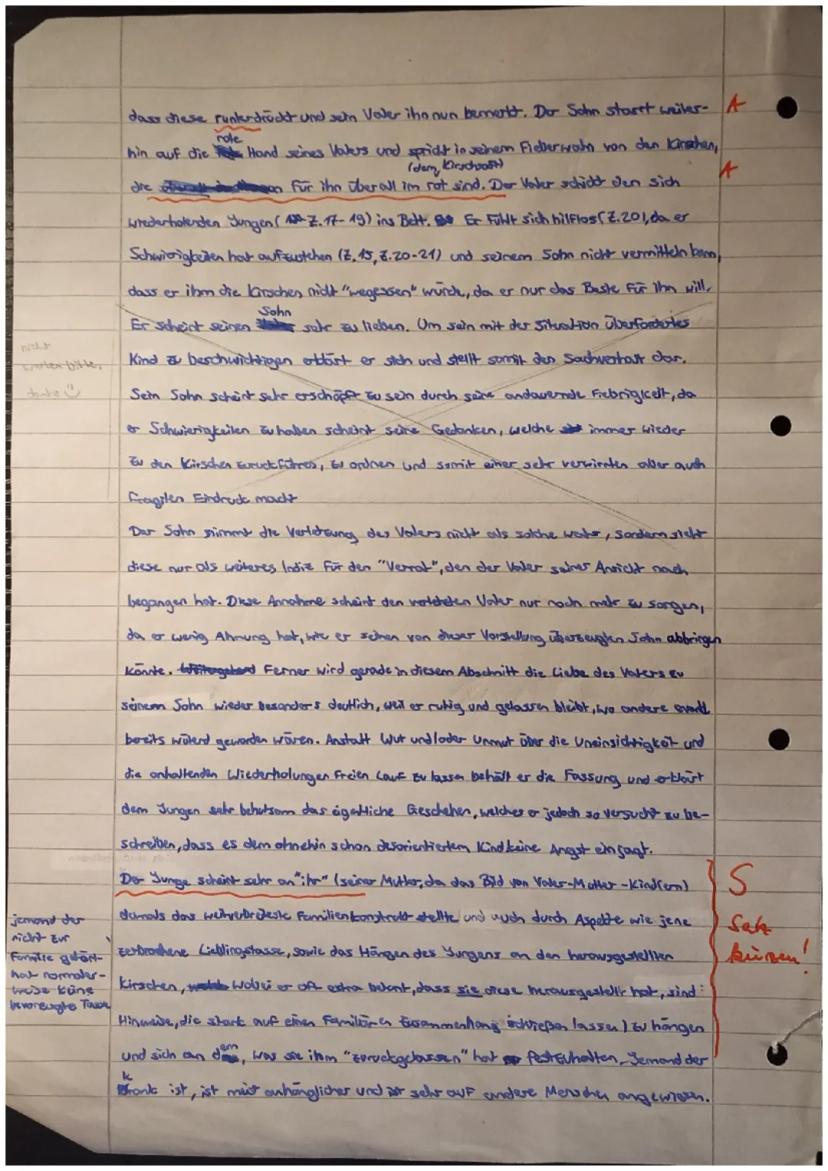 dass diese runterdrückt und sein Vater ihn nun bemerkt. Der Sohn starrt weiter- A
rote
hin auf die Hand seines Vaters und spricht in seinem Fieberwahn von den Kirschen,
(dem Kirschsaft)
die für ihn überall im rot sind. Der Vater schickt den sich A
wiederholenden Jungen (Z. 17-19) ins Bett. Er fühlt sich hilflos (Z. 20), da er
Schwierigkeiten hat aufzustehen (Z. 15, Z. 20-21) und seinem Sohn nicht vermitteln kann,
dass er ihm die Kirschen nicht "wegessen" würde, da er nur das Beste für ihn will.
Sohn
Er scheint seinen sehr zu lieben. Um sein mit der Situation überfordertes
nicht
werten bitte,
danke
Kind zu beschwichtigen erklärt er sich und stellt somit den Sachverhalt dar.
Sein Sohn scheint sehr erschöpft zu sein durch seine andauernde Fiebrigkeit, da
er Schwierigkeiten zu haben scheint seine Gedanken, welche immer wieder
zu den Kirschen zurückführen, zu ordnen und somit einer sehr verwirrten aber auch
fragilen Eindruck macht
Der Sohn nimmt die Verletzung des Vaters nicht als solche wahr, sondern sieht
diese nur als weiteres Indiz für den "Verrat", den der Vater seiner Ansicht nach
begangen hat. Diese Annahme scheint den verletzten Vater nur noch mehr zu sorgen,
da er wenig Ahnung hat, wie er seinen von dieser Vorstellung überzeugten Sohn abbringen
könnte. Ferner wird gerade in diesem Abschnitt die Liebe des Vaters zu
seinem Sohn wieder besonders deutlich, weil er ruhig und gelassen bleibt, wo andere
bereits wütend geworden wären. Anstatt Wut und/oder Unmut über die Uneinsichtigkeit und
die anhaltenden Wiederholungen freien Lauf zu lassen behält er die Fassung und erklärt
dem Jungen sehr behutsam das eigentliche Geschehen, welches er jedoch so versucht zu be-
schreiben, dass es dem ohnehin schon desorientiertem Kind keine Angst einjagt.
Der Junge scheint sehr an "ihr" (seiner Mutter, da das Bild von Vater-Mutter-Kind(ern) S
damals das weitverbreiteste Familienkonstrukt stellte und auch durch Aspekte wie jene Satz
zerbrochene Lieblingstasse, sowie das Hängen des Jungens an den herausgestellten kürzen!
jemand der
nicht zur
Familie gehört
hat normaler-
weise keine
bevorzugte Tasse
Kirschen, wobei er oft extra betont, dass sie diese herausgestellt hat, sind
Hinweise, die stark auf einen familiären Zusammenhang schließen lassen) zu hängen
und sich an dem, was sie ihm "zurückgelassen" hat festzuhalten. Jemand der
krank ist, ist meist anhänglicher und ist sehr auf andere Menschen angewiesen.